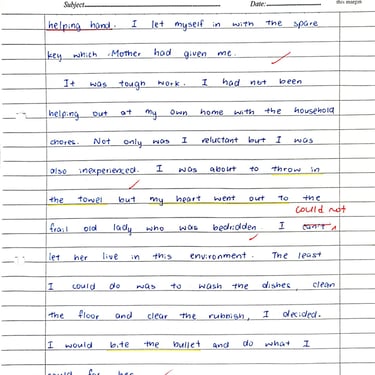 Subject: Date: this margin
helping hand. I let myself in with the spare
key which Mother had given me.
It was tough work. I had not been
helping out at my own home with the household
chores. Not only was I reluctant but I was
also inexperienced. I was about to throw in
the towel but my heart went out to the
could not
frail old lady who was bedridden. I can't
let her live in this environment. The least
I could do was to wash the dishes, clean
the floor and clear the rubbish, I decided.
I would bite the bullet and do what I
could for her